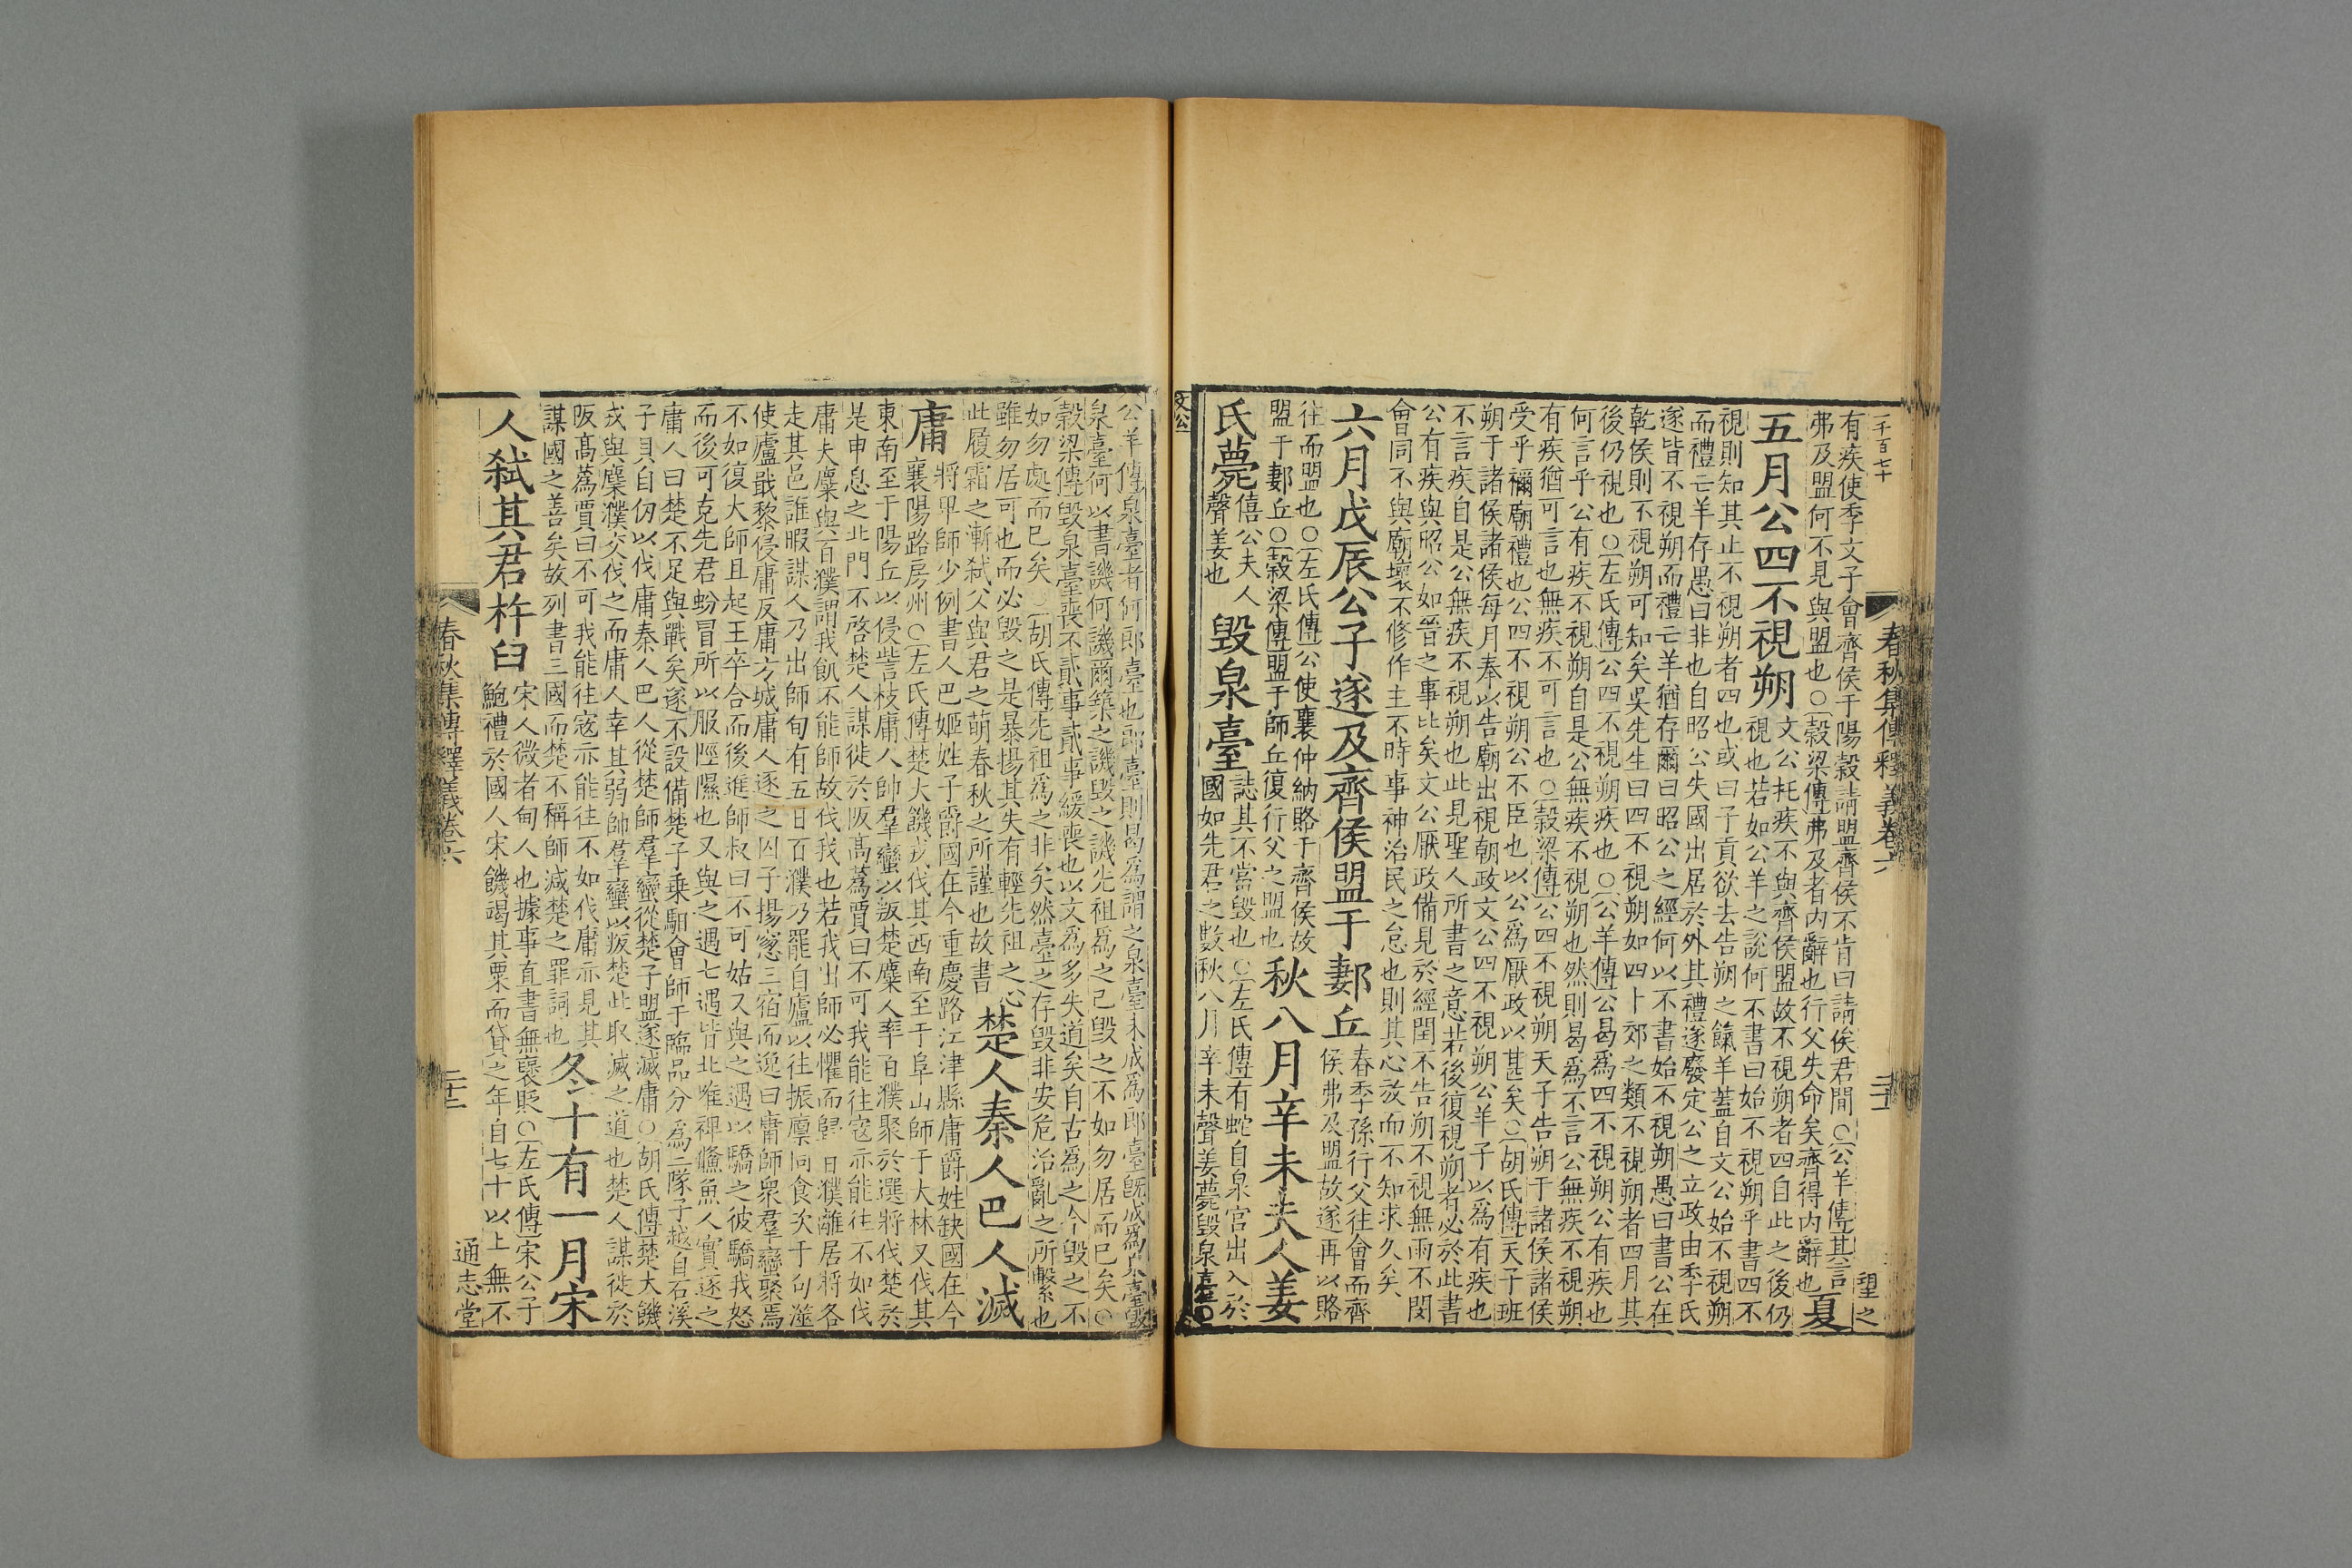 一千百七十
春秋集傳釋義卷六
二十二
望之
有疾使季文子會齊侯于陽穀請盟齊侯不肯曰請俟君閒○公羊傳其言
弗及盟何不見與盟也○穀梁傳弗及者內辭也行父失命矣齊得內辭也夏
五月公四不視朔
文公托疾不與齊侯盟故不視朔者四自此之後仍
視也若如公羊之說何不書曰始不視朔乎書四不
視則知其止不視朔者四也或曰子貢欲去告朔之餼羊蓋自文公始不視朔
而禮亡羊存愚曰非也自昭公失國出居於外其禮遂廢定公之立政由季氏
遂皆不視朔而禮亡羊猶存爾曰昭公之經何以不書始不視朔愚曰書公在
乾侯則不視朔可知矣吳先生曰四不視朔如四卜郊之類不視朔者四月其
後仍視也○左氏傳公四不視朔疾也○公羊傳公曷為四不視朔公有疾也
何言乎公有疾不視朔自是公無疾不視朔也然則曷為不言公無疾不視朔
有疾猶可言也無疾不可言也○穀梁傳公四不視朔天子告朔于諸侯諸侯
受乎禰廟禮也公四不視朔公不臣也以公為厭政以甚矣○胡氏傳天子班
朔于諸侯諸侯每月奉以告廟出視朝政文公四不視朔公羊子以為有疾也
不言疾自是公無疾不視朔也此見聖人所書之意若後復視朔者必於此書
公有疾與昭公如晉之事比矣文公厭政備見於經閏不告朔不視無雨不閔
會同不與廟壞不修作主不時事神治民之怠也則其心放而不知求久矣
六月戊辰公子遂及齊侯盟于郪丘
春季孫行父往會而齊
侯弗及盟故遂再以賂
往而盟也○左氏傳公使襄仲納賂于齊侯故
盟于郪丘○穀梁傳盟于師丘復行父之盟也
秋八月辛未夫人姜
氏薨
僖公夫人
聲姜也
毀泉臺
誌其不當毀也○左氏傳有蛇自泉宮出入於
國如先君之數秋八月辛未聲姜薨毀泉臺○
文公
公羊傳泉臺者何郎臺也郎臺則曷為謂之泉臺未成為郎臺既成為泉臺毀
泉臺何以書譏何譏爾築之譏毀之譏先祖為之已毀之不如勿居而已矣○
穀梁傳毀泉臺喪不貳事貳事緩喪也以文為多失道矣自古為之今毀之不
如勿處而已矣○胡氏傳先祖為之非矣然臺之存毀非安危治亂之所繫也
雖勿居可也而必毀之是暴揚其失有輕先祖之心
此履霜之漸弒父與君之萌春秋之所謹也故書
楚人秦人巴人滅
庸
將卑師少例書人巴姬姓子爵國在今重慶路江津縣庸爵姓缺國在今
襄陽路房州○左氏傳楚大饑戎伐其西南至于阜山師于大林又伐其
東南至于陽丘以侵訾枝庸人帥羣蠻以叛楚麇人率百濮聚於選將伐楚於
是申息之北門不啓楚人謀徙於阪高蒍賈曰不可我能往寇亦能往不如伐
庸夫麇與百濮謂我飢不能師故伐我也若我出師必懼而歸百濮離居將各
走其邑誰暇謀人乃出師旬有五日百濮乃罷自廬以往振廩同食次于句澨
使廬戢黎侵庸及庸方城庸人逐之囚子揚窻三宿而逸曰庸師衆羣蠻聚焉
不如復大師且起王卒合而後進師叔曰不可姑又與之遇以驕之彼驕我怒
而後可克先君蚡冒所以服陘隰也又與之遇七遇皆北唯裨鯈魚人實逐之
庸人曰楚不足與戰矣遂不設備楚子乘馹會師于臨品分為二隊子越自石溪
子貝自仞以伐庸秦人巴人從楚師羣蠻從楚子盟遂滅庸○胡氏傳楚大饑
戎與麇濮交伐之而庸人幸其弱帥羣蠻以叛楚此取滅之道也楚人謀徙於
阪高蒍賈曰不可我能往寇亦能往不如伐庸亦見其
謀國之善矣故列書三國而楚不稱師減楚之罪詞也
冬十有一月宋
人弒其君杵臼
宋人微者甸人也據事直書無襃貶○左氏傳宋公子
鮑禮於國人宋饑竭其粟而貸之年自七十以上無不
春秋集傳釋義卷六
二十二
通志堂